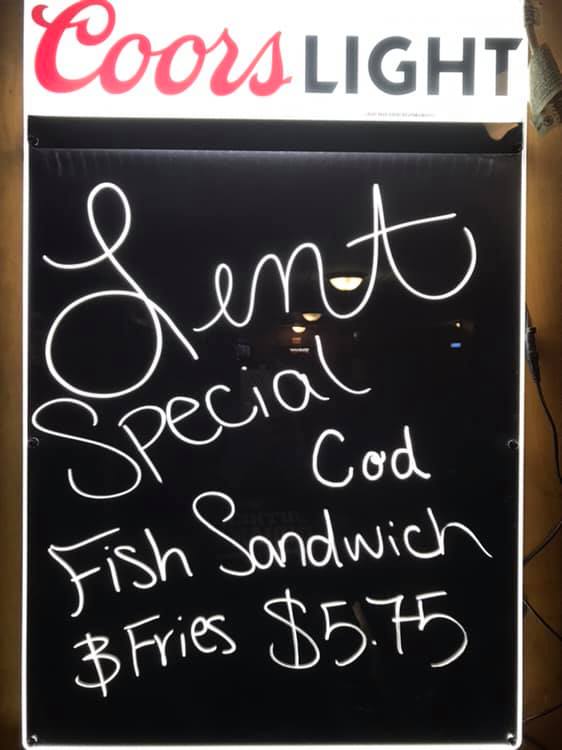 Coors LIGHT
Lent
Special
Cod
Fish Sandwich
& Fries $5.75